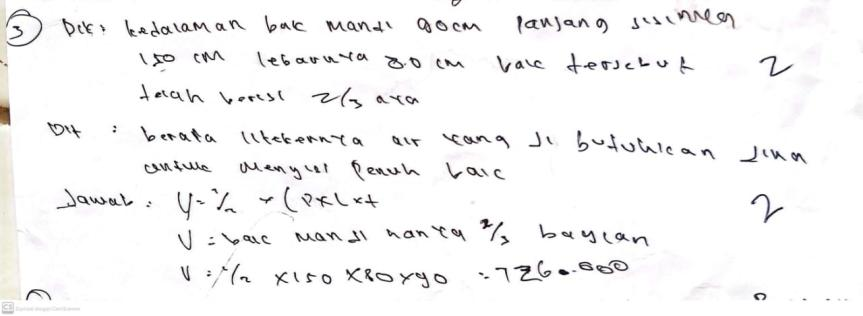 3 Dik : kedalaman bak mandi 90cm panjang sisinnea
150 cm lebarnya 80 cm bak tersebut 2
telah berisi 2/3 aya
Dit : berata literkennya air yang di butuhkan Jika
untuk menyisi Penuh bak
Jawab : V = 1/2 x (PxLxt 2
V = bak mandi hanya 2/3 baycan
V = 1/2 x150 x80x90 = 7260.000
CS Scanned dengan CamScanner